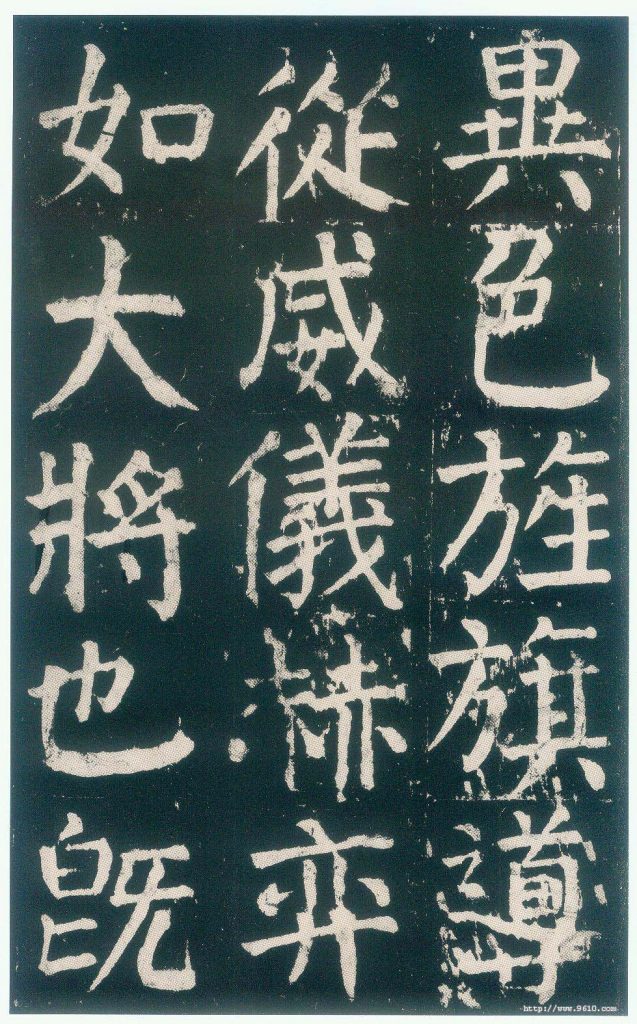 異色旌旗導
從威儀赫弈
如大將也旣
http://www.9610.com